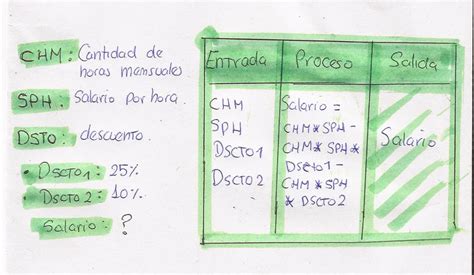 CHM: Cantidad de
horas mensuales
SPH: Salario por hora.
DSTO: descuento.
• DSCTO1: 25%
• DSCTO2: 10%
Salario: ?
Entrada Proceso Salida
CHM
SPH
DSCTO1
DSCTO2
Salario =
CHM*SPH-
CHM*SPH*
DSCTO1-
CHM*SPH
*DSCTO2
Salario